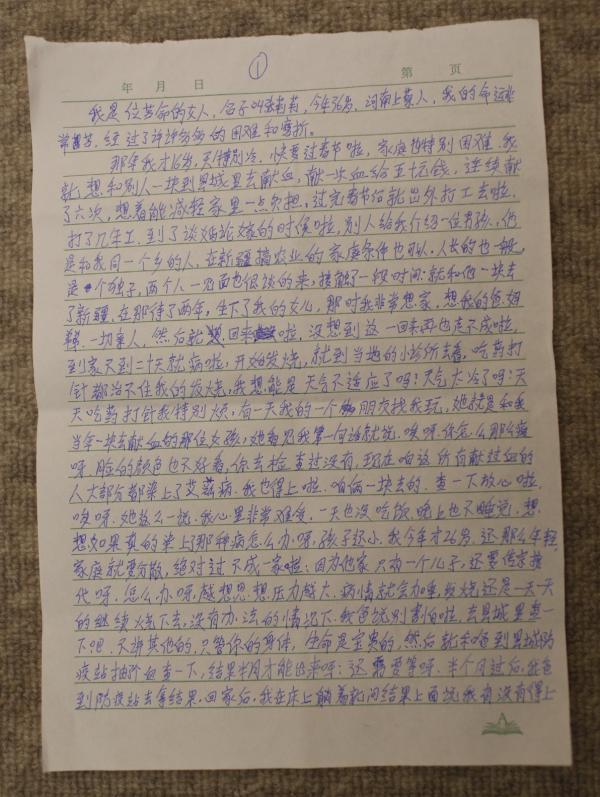 ①
年 月 日 第 页
我是位苦命的女人，名子叫张莉莉，今年36岁，河南上蔡人，我的命运非
常苦，经过了许许多多的困难和磨折。
那年我才16岁，天特别冷，快要过春节啦，家庭特别困难，我
就想和别人一块到县城里去献血，献一次血给五十元钱，连续献
了六次，想着能减轻家里一点欠把，过完春节后就出外打工去啦，
打了几年工，到了谈婚论嫁的时候啦，别人给我介绍一位男孩，他
是和我同一个乡的人，在新疆搞农业的家庭条件也可以，人长的也一般，
是个独子，两个人一见面也很谈的来，接触了一段时间，就和他一块去
了新疆，在那待了两年，生下了我的女儿，那时我非常想家，想我的爸妈
一切亲人，然后就回来啦，没想到这一回来再也走不成啦，
到家不到二十天就病啦，开始发烧，就到当地的小诊所去看，吃药打
针都治不住我的发烧，我想能是天气不适应了吗？天气太冷了吗？天
天吃药打针我特别烦，有一天我的一个朋友找我玩，她就是和我
当年一块去献血的那位女孩，她看见我第一句话就说，唉呀，你怎么那么瘦
呀，脸的颜色也不好看，你去检查过没有，现在咱这所有献过血的
人大部分都染上了艾滋病，我也得上啦，咱俩一块去的，查一下放心啦，
唉呀，她这么一说，我心里非常难受，一天也没吃饭，晚上也不睡觉，想
想如果真的染上那种病怎么办呀，孩子还小，我今年才26岁，还那么年轻，
家庭就要分散，绝对过不成一家啦，因为他家只有一个儿子，还要传宗接
代呀，怎么办呀，越想思想压力越大，病情就会加重，发烧还是一天一天
的继续烧下去，没有办法的情况下，我爸说别害怕啦，去县城里查一
下吧，不讲其他的，只管你的身体，生命是宝贵的，然后就和爸到县城防
疫站抽个血查一下，结果半月才能出来呀，还需要等呀，半个月过后，我爸
到防疫站去拿结果，回家后，我在床上躺着就问结果上面说我有没有得上